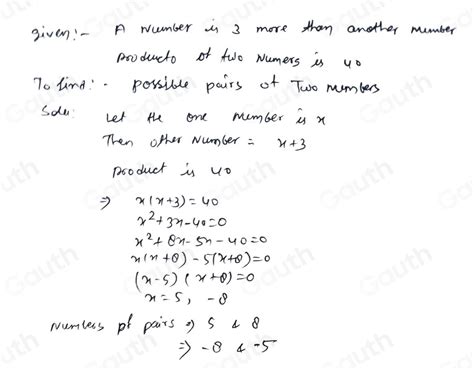 given:- A number is 3 more than another number
producto of two Numers is 40
To find:- possible pairs of Two numbers
Soln:
Let the one number is x
Then other Number = x+3
product is 40
⇒ x(x+3)=40
x²+3x-40=0
x²+8x-5x-40=0
x(x+8)-5(x+8)=0
(x-5)(x+8)=0
x=5, -8
Numbers of pairs ⇒ 5 & 8
⇒ -8 & -5
Gauth